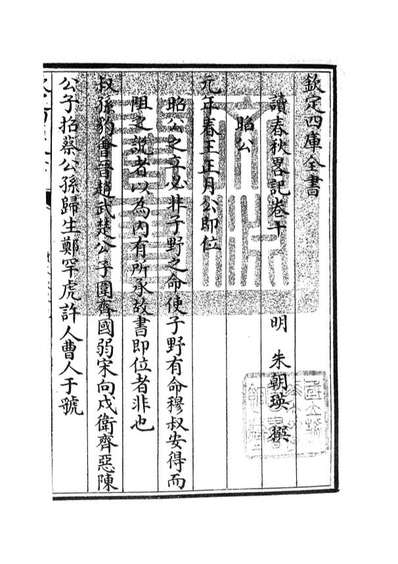 欽定四庫全書
讀春秋畧記卷十
明 朱朝瑛 撰
昭公
元年春王正月公即位
昭公之立必非子野之命使子野有命穆叔安得而
阻之說者以為内有所承故書即位者非也
叔孫豹會晉趙武楚公子圍齊國弱宋向戌衛齊惡陳
公子招蔡公孫歸生鄭罕虎許人曹人于虢